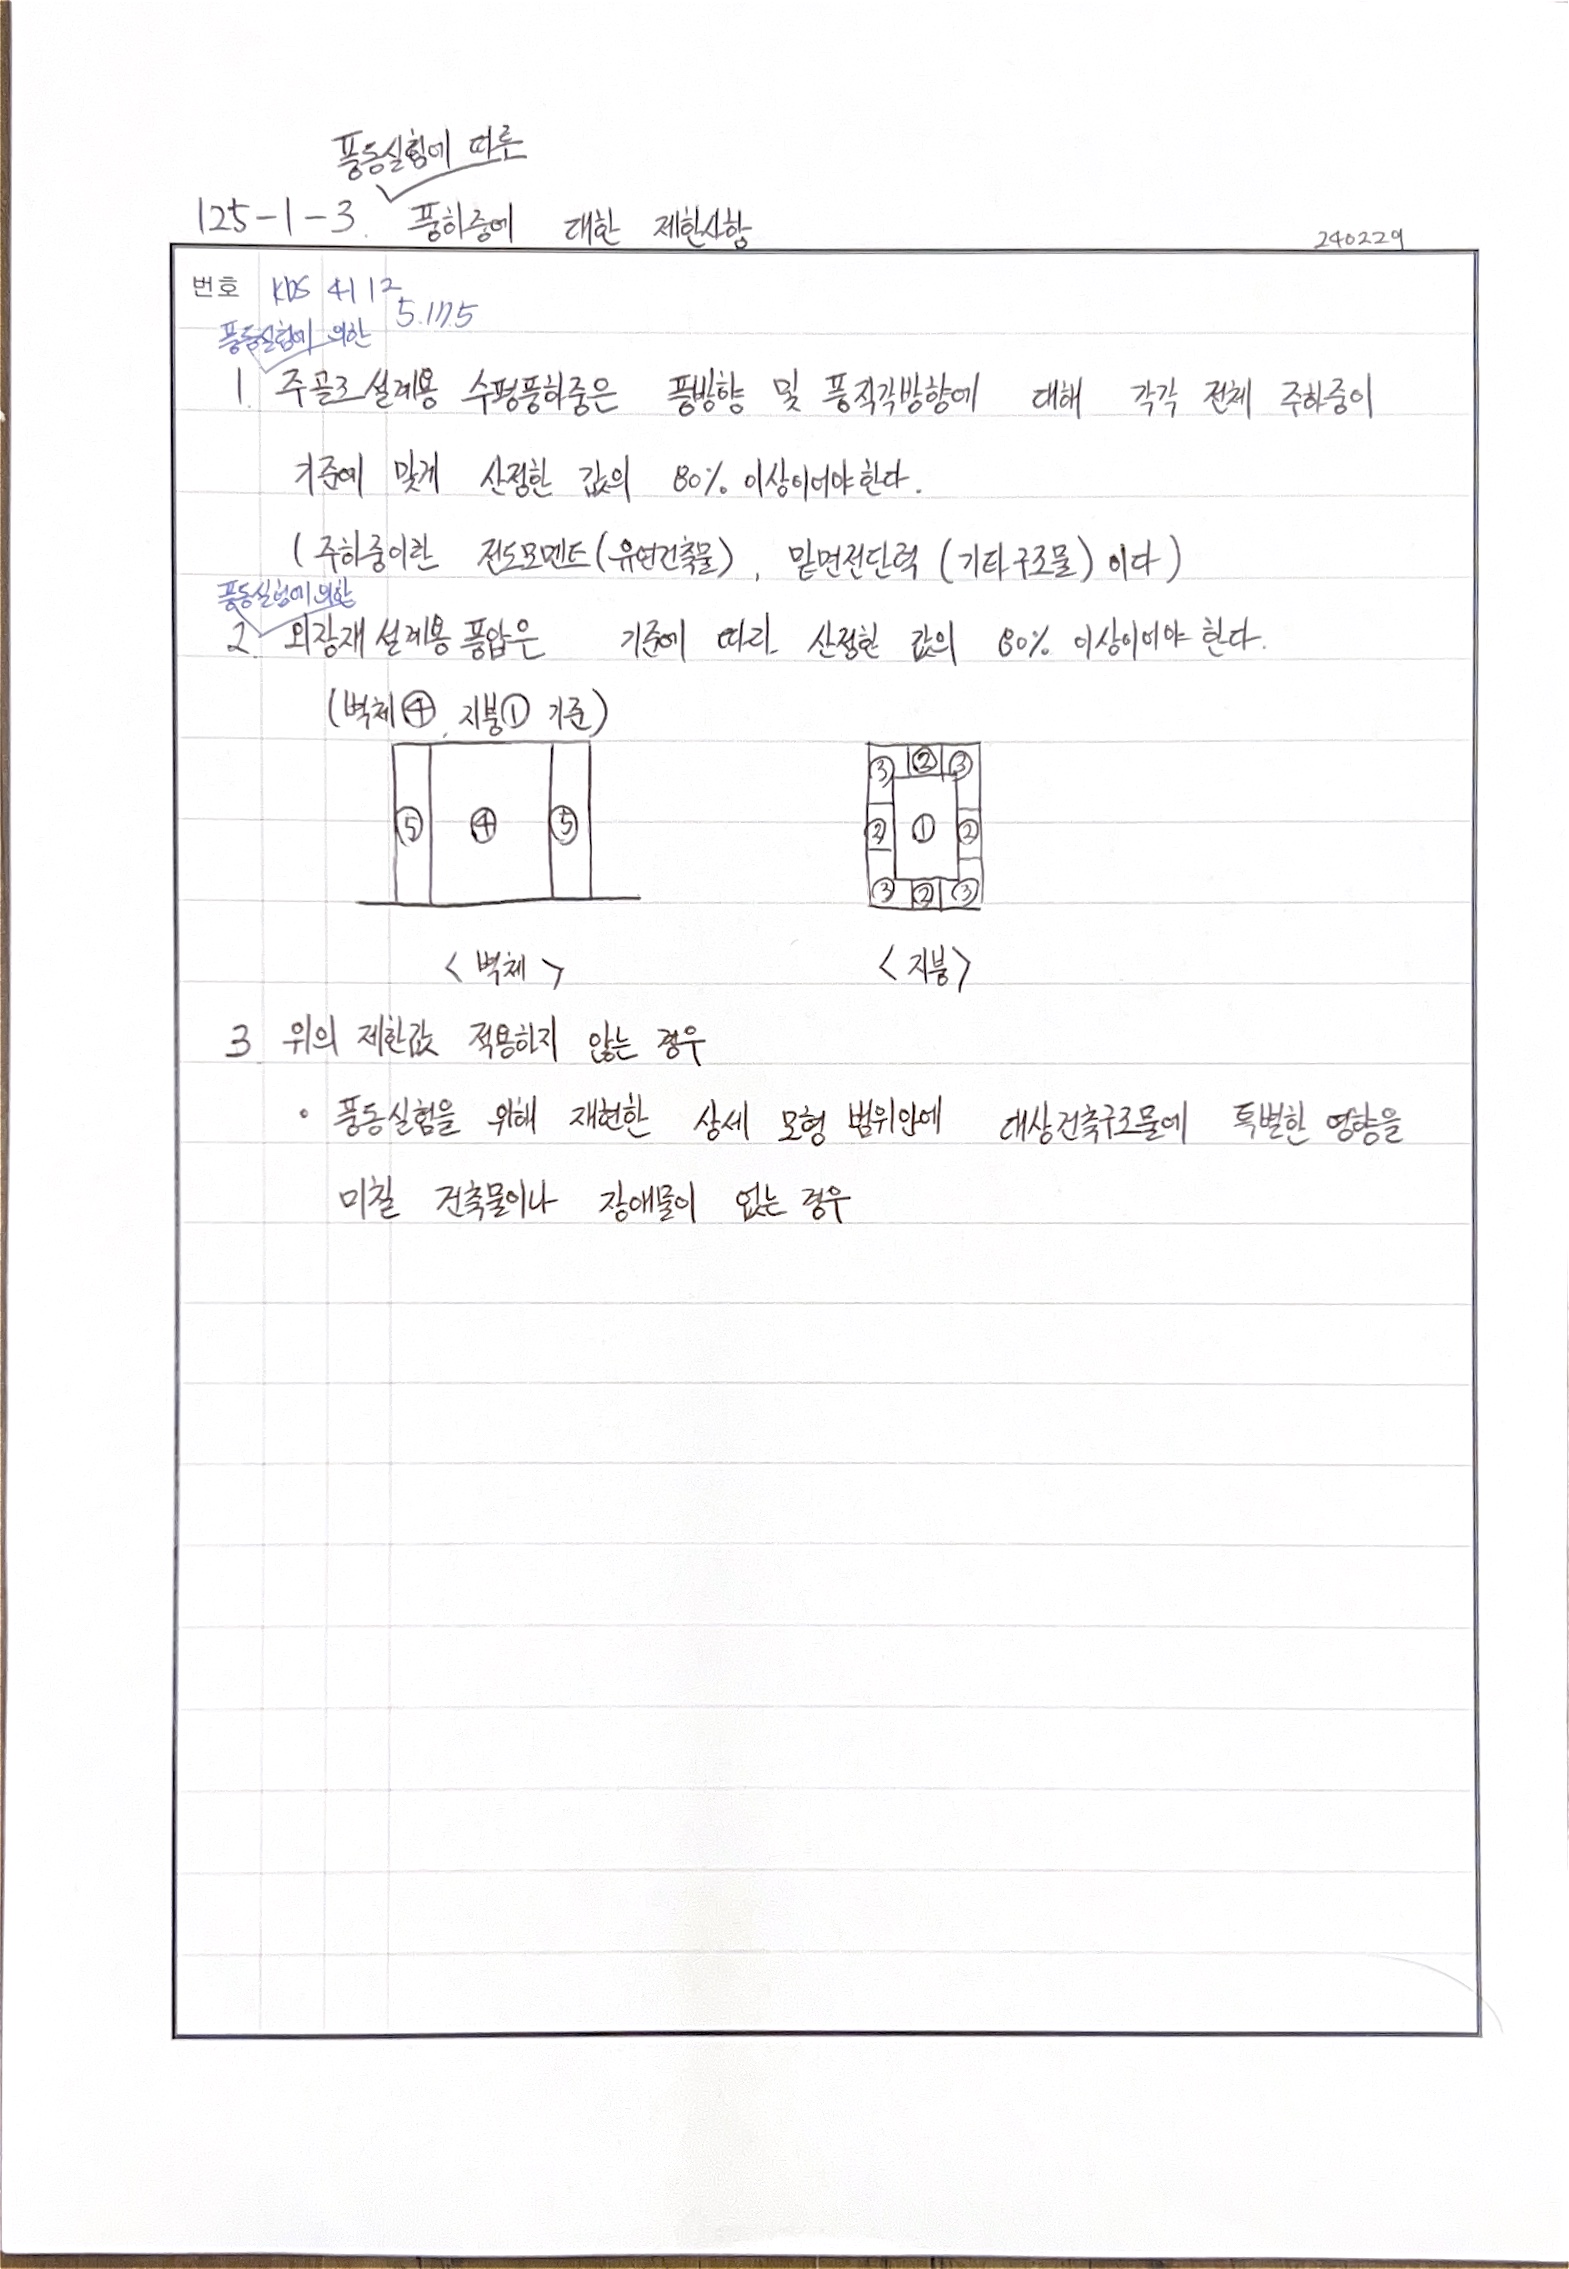 풍동실험에 따른
125-1-3. 풍하중에 대한 제한사항
240229
번호 KDS 41 12
5.17.5
풍동실험에 의한
1. 주골조설계용 수평풍하중은 풍방향 및 풍직각방향에 대해 각각 전체 주하중이
기준에 맞게 산정한 값의 80% 이상이어야한다.
(주하중이란 전도모멘트(유연건축물), 밑면전단력(기타구조물)이다)
풍동실험에 의한
2. 외장재설계용풍압은 기준에 따라 산정한 값의 80% 이상이어야 한다.
(벽체④, 지붕① 기준)
③ ② ③
⑤ ④ ⑤ ② ① ②
③ ② ③
<벽체> <지붕>
3. 위의 제한값 적용하지 않는 경우
• 풍동실험을 위해 재현한 상세 모형 범위안에 대상건축구조물에 특별한 영향을
미칠 건축물이나 장애물이 없는 경우